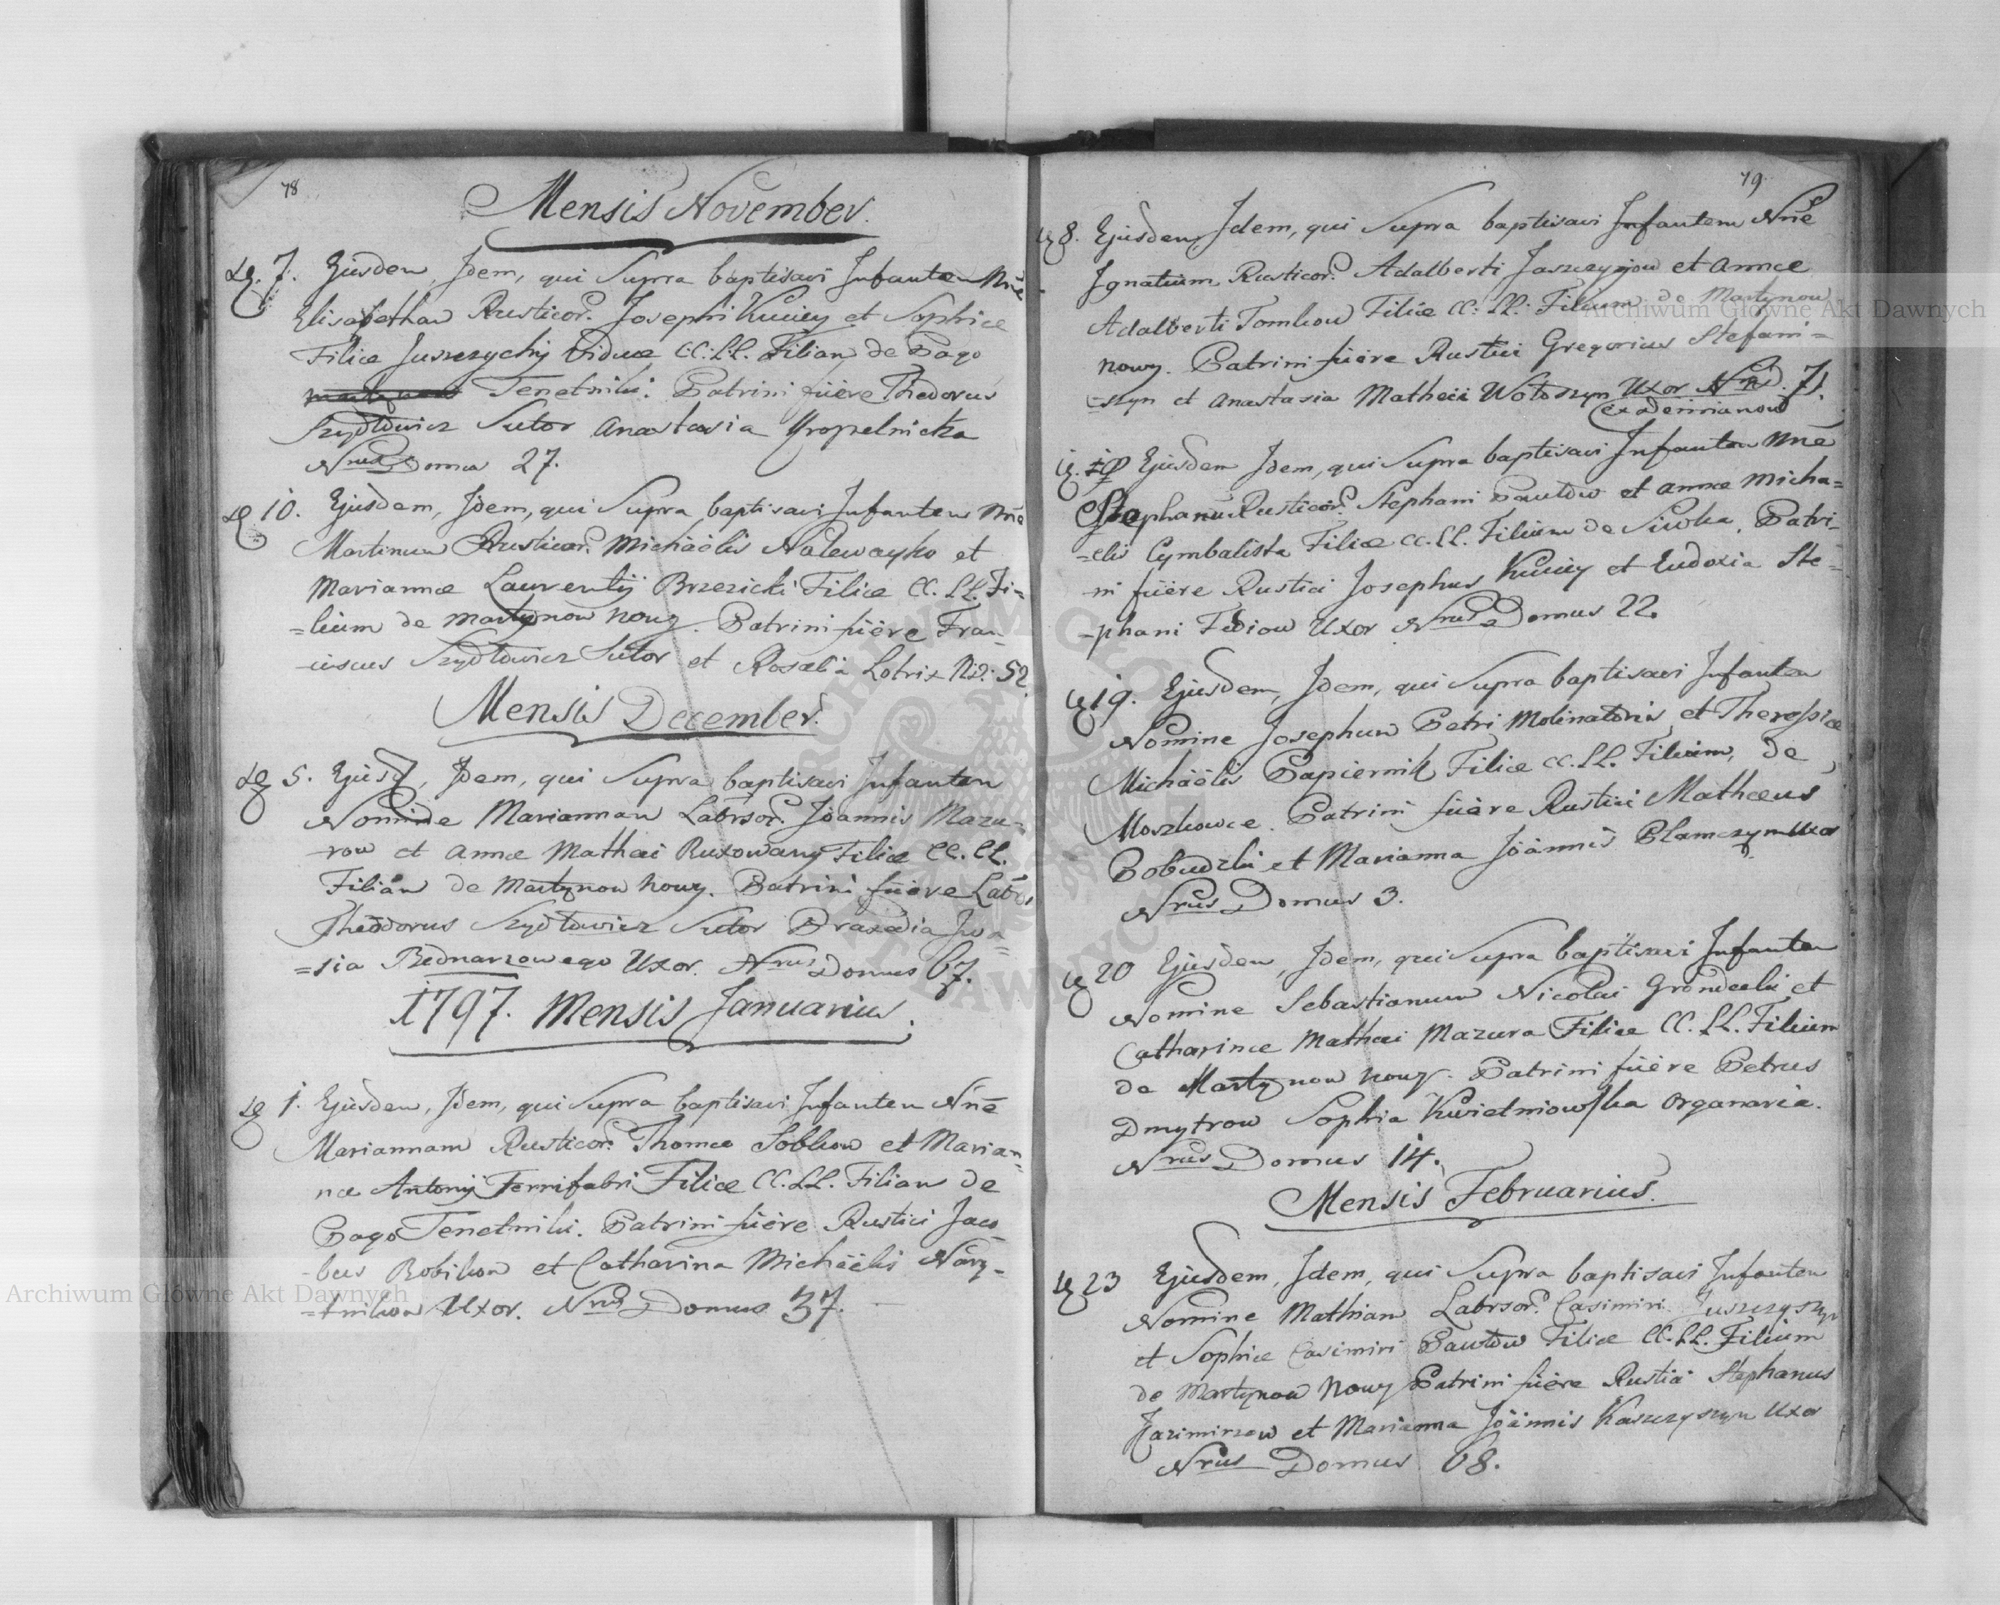 78
Mensis November.
D. 7. Ejusdem, Idem, qui Supra baptisavi Infantem Nne
Elisabetham Rusticor. Josephi Kuciey et Sophiae
Filiae Juszczychy Viduae CC. LL. Filiam de Pago
Tenetniki. Patrini fuere Theodorus
Szydłowicz Sutor Anastasia Kropelnicka
Nrus Domus 27.
D 10. Ejusdem, Idem, qui Supra baptisavi Infantem Nne
Martinum Rusticor. Michaëlis Nalewayko et
Mariannae Laurentij Brzezicki Filiae CC. LL. Fi=
=lium de Martynow nowy. Patrini fuere Fran=
ciscus Szydłowicz Sutor et Rosalia Lotrix ND: 52.
Mensis December.
D 5. Ejusd, Idem, qui Supra baptisavi Infantem
Nomine Mariannam Labrsor. Joannis Mazu=
row et Annae Mathaei Ruxowany Filiae CC. LL.
Filiam de Martynow nowy. Patrini fuere Labr.
Theodorus Szydłowicz Sutor Praxedia Iwa=
=sia Bednarzowego Uxor. Nrus Domus 67.
1797. Mensis Januarius.
D 1. Ejusdem, Idem, qui Supra baptisavi Infantem Nne
Mariannam Rusticor. Thomae Sobkow et Marian=
nae Antonij Ferrifabri Filiae CC. LL. Filiam de
Pago Tenetniki. Patrini fuere Rustici Jaco=
=bus Bobikow et Catharina Michaëlis Nary=
=tnikow Uxor. Nrus Domus 37.
79
D 8. Ejusdem, Idem, qui Supra baptisavi Infantem Nne
Ignatium Rusticor. Adalberti et Annae
Adalberti Tomkow Filiae CC. LL. Filium de Martynow
nowy. Patrini fuere Rustici Gregorius Stefani=
=szyn et Anastasia Matheii Wołoszyn Uxor Nrus D. 71.
ex Demianow
Ejusdem Idem, qui Supra baptisavi Infantem Nne
Stephanu Rusticor. Stephani Pawłow et Annae Micha=
=elis Cymbalista Filiae CC. LL. Filium de Siwka. Patri=
ni fuere Rustici Josephus Kuciey et Eudoxia Ste=
=phani Fediow Uxor Nrus Domus 22.
D 19. Ejusdem, Idem, qui Supra baptisavi Infantem
Nomine Josephum Petri Molinatoris et Therossiae
Michaëlis Papiernik Filiae CC. LL. Filium, de
Moszkowce. Patrini fuere Rustici Mathaeus
et Marianna Joannis Uxor
Nrus Domus 3.
D 20 Ejusdem, Idem, qui Supra baptisavi Infantem
Nomine Sebastianum Nicolai Grondecki et
Catharinae Mathaei Mazura Filiae CC. LL. Filium
de Martynow nowy. Patrini fuere Petrus
Dmytrow Sophia Kwietniowska Organaria.
Nrus Domus 14.
Mensis Februarius.
D 23 Ejusdem, Idem, qui Supra baptisavi Infantem
Nomine Mathiam Labrsor. Casimiri Juszczyszyn
et Sophiae Casimiri Pawłow Filiae CC. LL. Filium
de Martynow nowy Patrini fuere Rustici Stephanus
Kazimirzow et Marianna Joannis Kaszczyszyn Uxor
Nrus Domus 68.
Archiwum Główne Akt Dawnych
Archiwum Główne Akt Dawnych